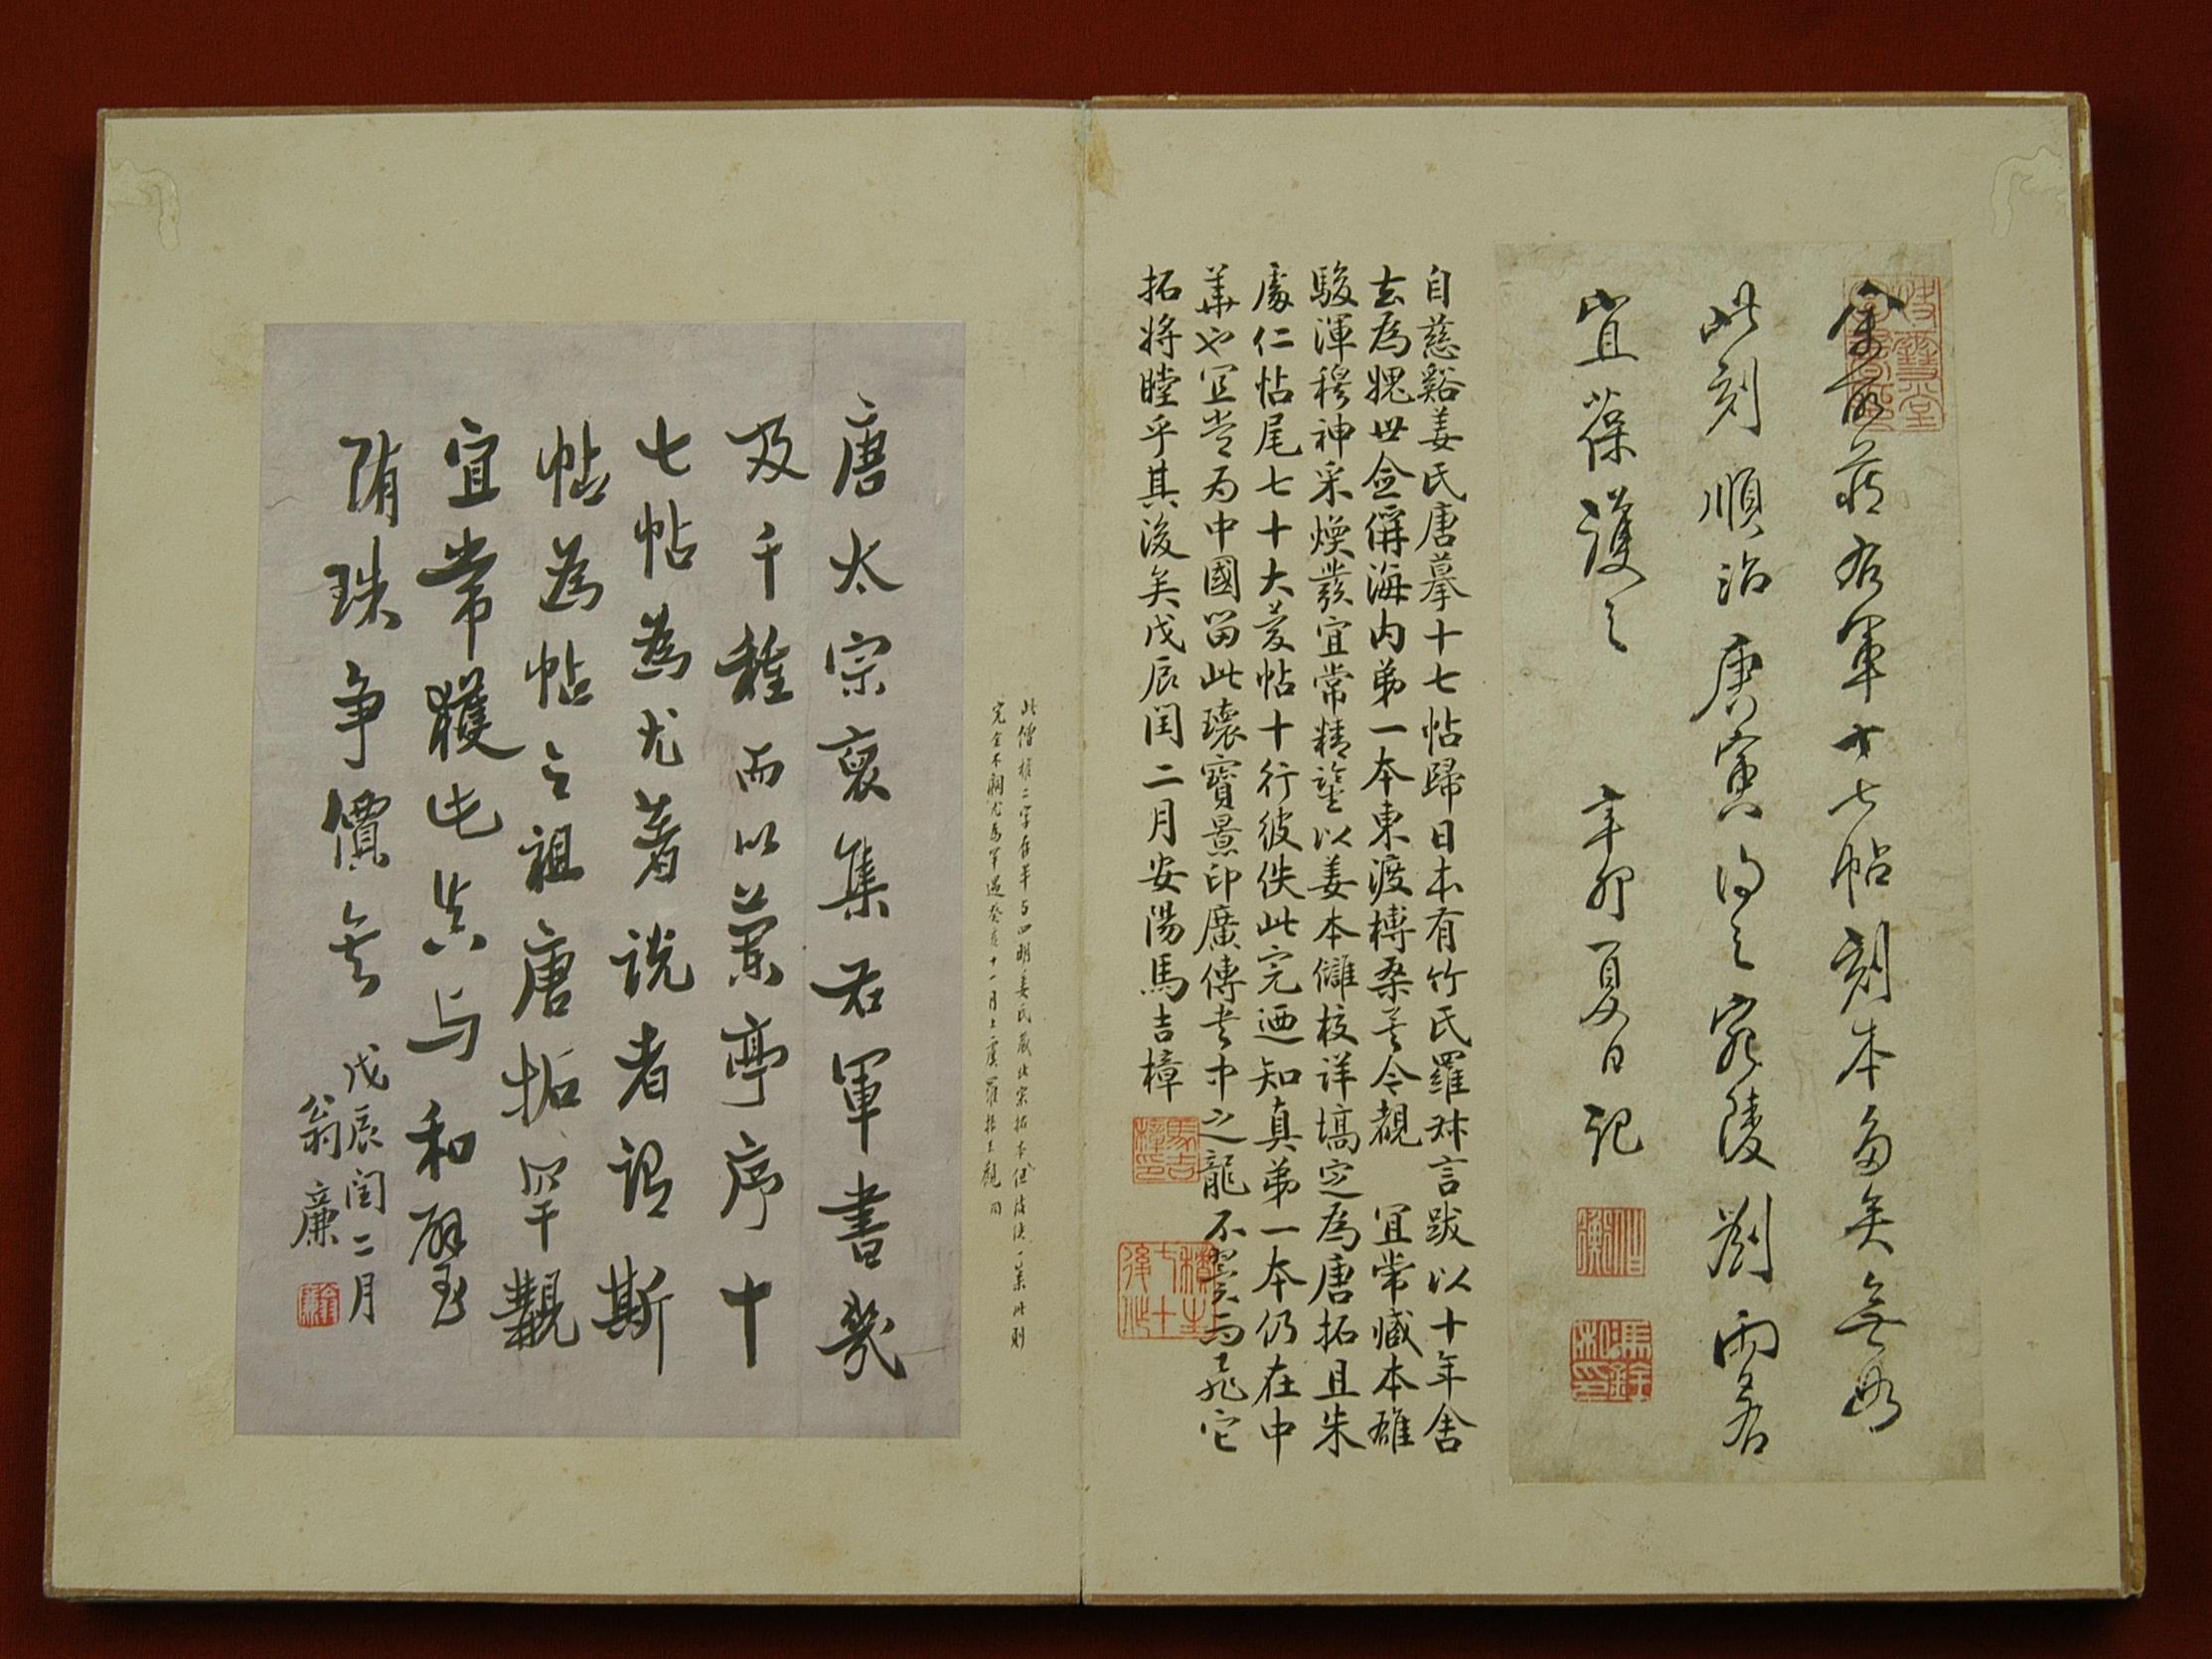 余所藏右軍十七帖刻本多矣無如
此刻順治庚寅得之宛陵劉雨若
宜葆護之 辛卯夏日記
自慈谿姜氏唐摹十七帖歸日本有竹氏羅叔言跋以十年舍
去為媿世僉偁海内弟一本東渡榑桑茗令覩 宜常臧本雄
駿渾穆神采煥發宜常精鑒以姜本讎校詳搞定為唐拓且朱
處仁帖尾七十大慶帖十行彼佚此完迺知真弟一本仍在中
華也宜常為中國留此瓌寶景印廣傳書中之龍不翼而飛它
拓將瞠乎其後矣戊辰閏二月安陽馬吉樟
馬吉樟印
此僧權二字存半與四明姜氏藏北宋拓本但後佚一葉此則
完全不闕尤為罕遇癸亥十一月上虞羅振玉觀
唐太宗裒集右軍書幾
及千種而以蘭亭序十
七帖為尤著說者謂斯
帖為帖之祖唐拓罕觀
宜常獲此與与和璧
隋珠爭價矣
戊辰閏二月
翁廉